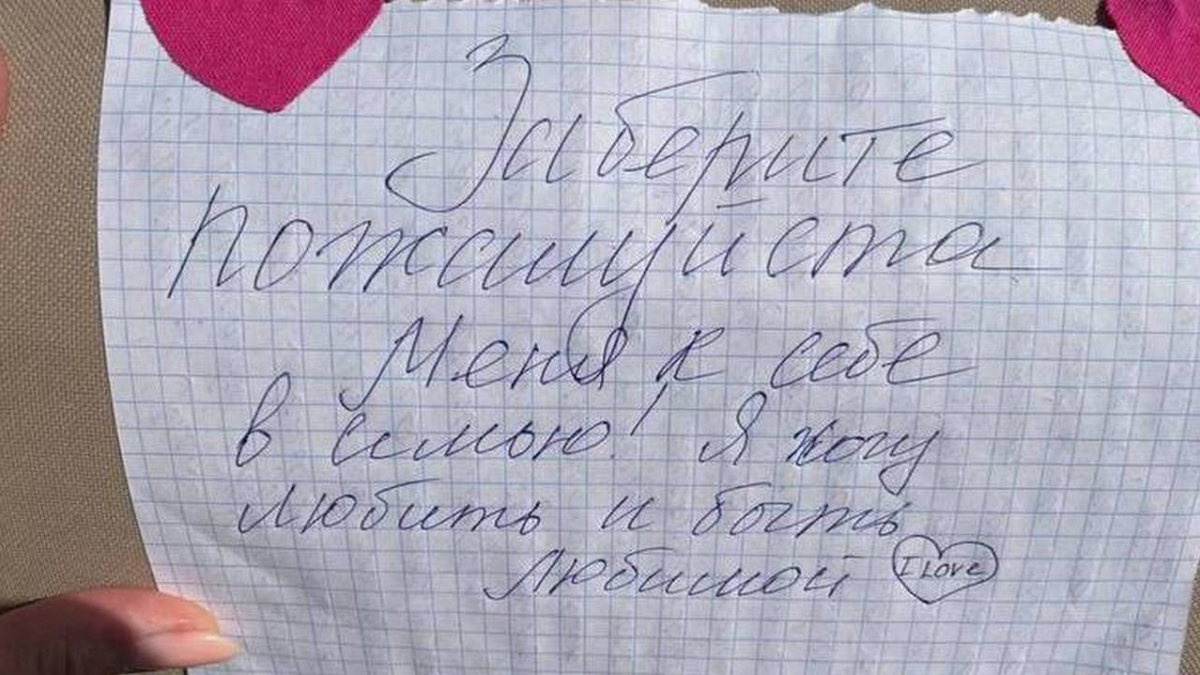 Заберите
пожалуйста
Меня к себе
в семью! Я хочу
любить и быть
любимой I Love